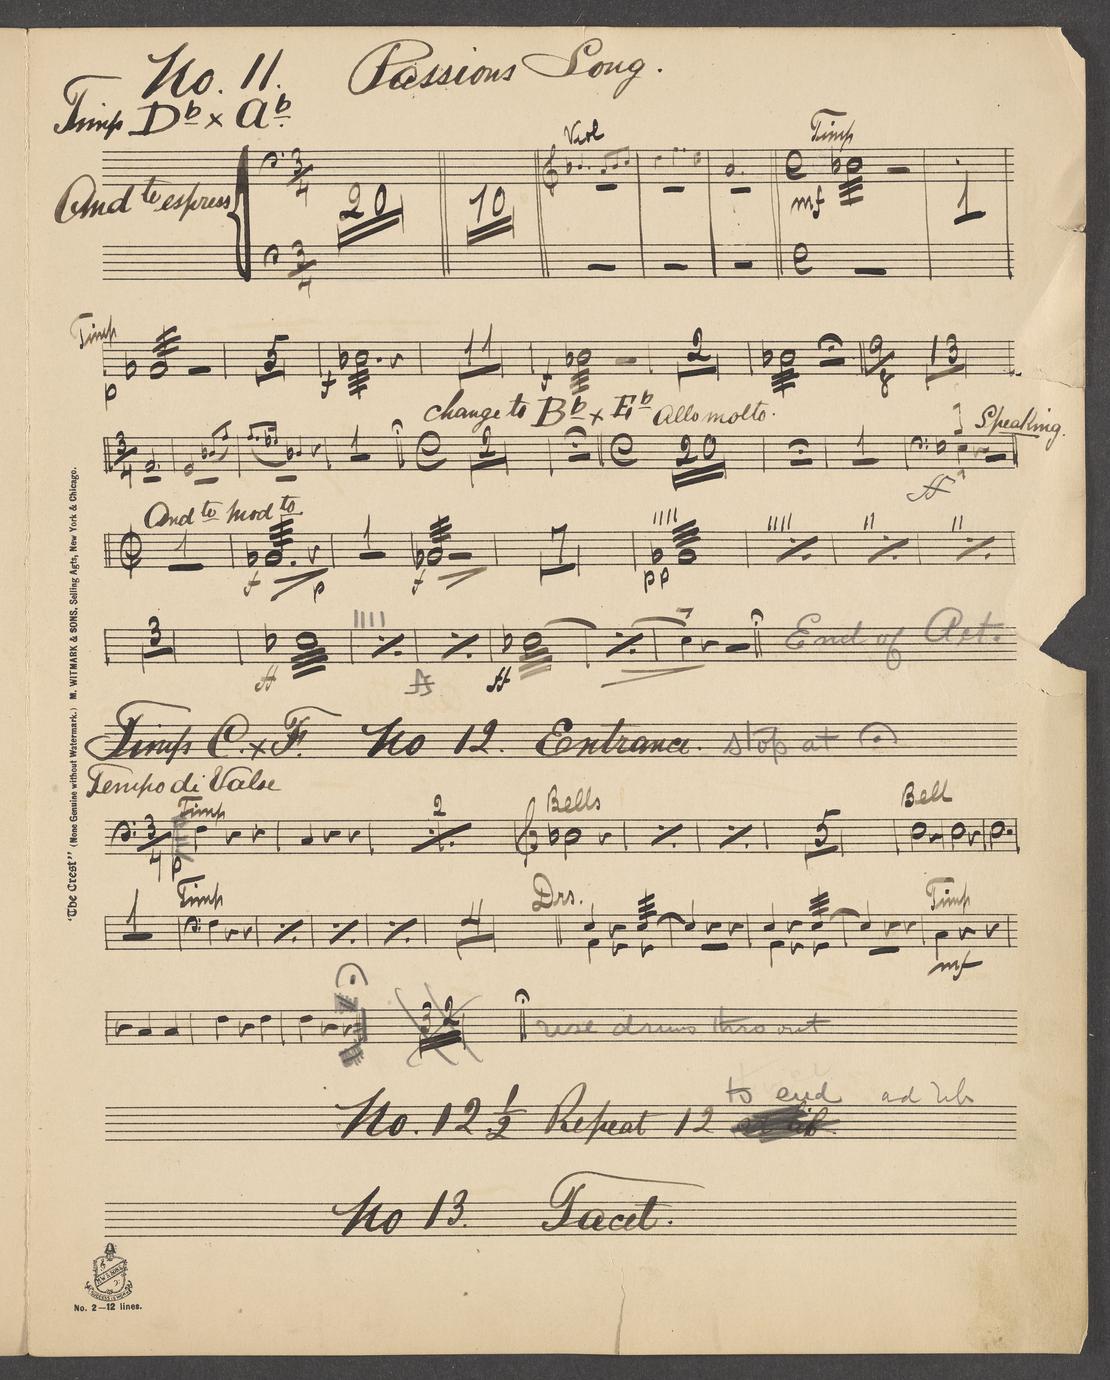 No. 11. Passions Song.
Timp D♭ x A♭
Viol Timp
And te espress 3/4 20 10 mf 1
3/4
Timp
p 5 f 11 f 2 9/8 13
change to B♭ x E♭ Allo molto.
Speaking.
3/4 1 2 20 1
ff
And te mod to
1 1 7
f p f pp
3
ff ff ff End of Act.
Timp C. x F. No 12. Entrance. stop at
Tempo di Valse
Timp 2 Bells Bell
3/4 p 5
Timp Drs. Timp
1 4
mf
32 use drums thro out
to end ad lib
No. 12 1/2 Repeat 12
No 13. Tacet.
"The Crest" (None Genuine without Watermark.) M. WITMARK & SONS, Selling Agts, New York & Chicago.
No. 2—12 lines.